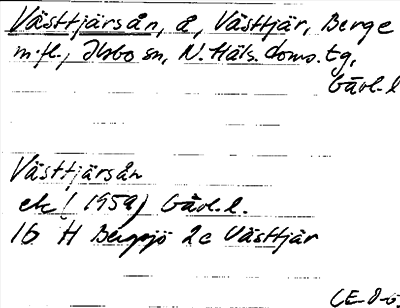 Västtjärsån, å, Västtjär, Berge
m.fl., Ilsbo sn, N. Häls. doms. tg,
Gävl. l
Västtjärsån
ek! 1959) Gävl. l.
16 H Bergsjö 2c Västtjär